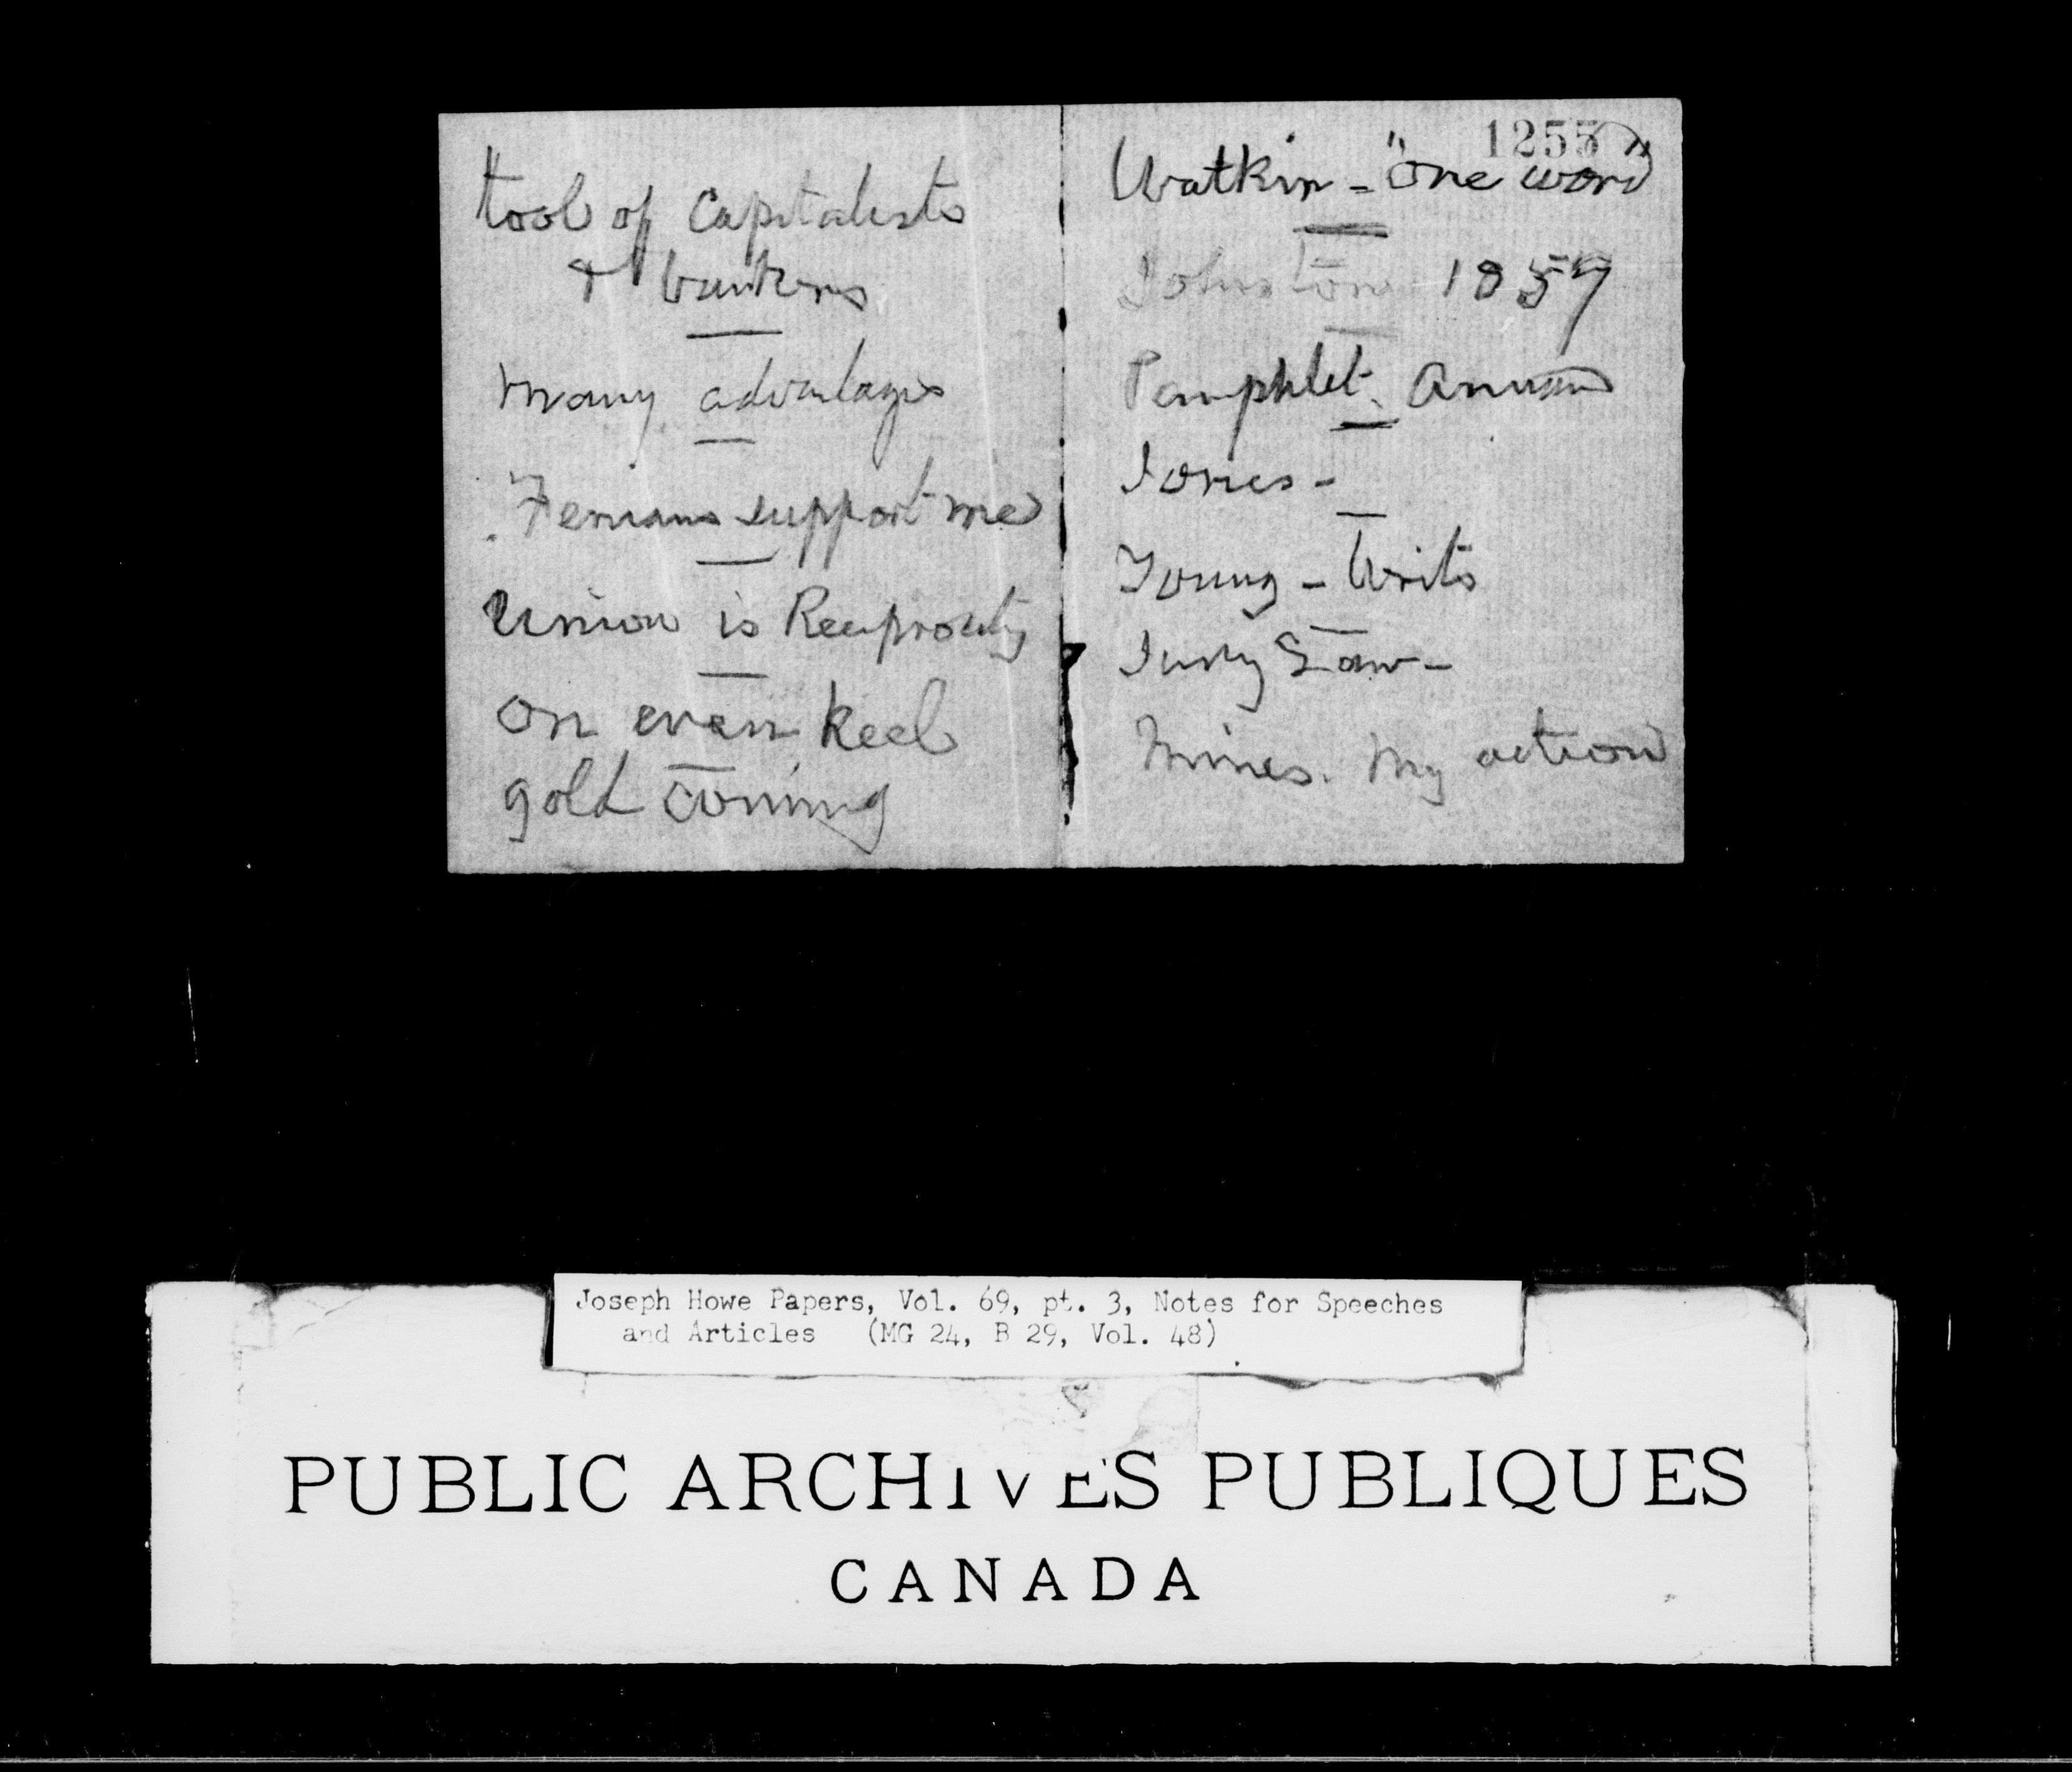 tool of Capitalists
& bankers
Many advantages
Fenians support me
Union is Reciprocity
On even keel
gold coming
1255
Watkin - "one word"
Johnston 1857
Pamphlet. Annand
Jones -
Young - Writs
Jury Law -
Mines. My action
Joseph Howe Papers, Vol. 69, pt. 3, Notes for Speeches
and Articles (MG 24, B 29, Vol. 48)
PUBLIC ARCHIVES PUBLIQUES
CANADA